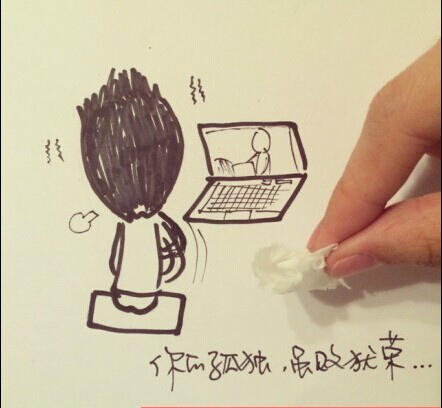 你的孤独,虽败犹荣...